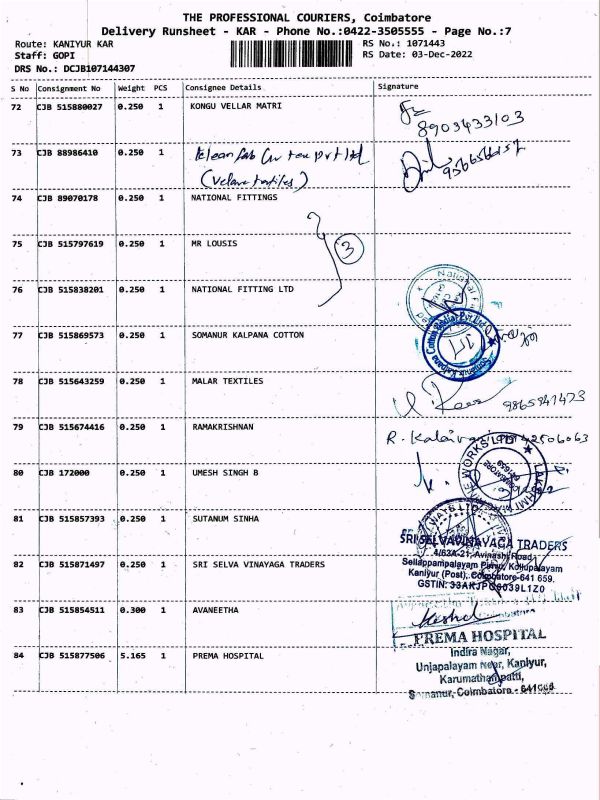 THE PROFESSIONAL COURIERS, Coimbatore
Delivery Runsheet - KAR - Phone No.:0422-3505555 - Page No.:7
Route: KANIYUR KAR RS No.: 1071443
Staff: GOPI RS Date: 03-Dec-2022
DRS No.: DCJB107144307
S No Consignment No Weight PCS Consignee Details Signature
72 CJB 515880027 0.250 1 KONGU VELLAR MATRI
8903433103
73 CJB 88986410 0.250 1
(Velava textiles)
74 CJB 89070178 0.250 1 NATIONAL FITTINGS
75 CJB 515797619 0.250 1 MR LOUSIS
3
76 CJB 515838201 0.250 1 NATIONAL FITTING LTD
77 CJB 515869573 0.250 1 SOMANUR KALPANA COTTON
Somanur Kalpana Cotton
78 CJB 515643259 0.250 1 MALAR TEXTILES
9865941423
79 CJB 515674416 0.250 1 RAMAKRISHNAN
R. Kalaivani
80 CJB 172000 0.250 1 UMESH SINGH B
LAKSHMI WORKS LTD
COIMBATORE
641659
81 CJB 515857393 0.250 1 SUTANUM SINHA
SRI SELVAVINAYAGA TRADERS
4/63A-21, Avinashi Road,
82 CJB 515871497 0.250 1 SRI SELVA VINAYAGA TRADERS
Sellappampalayam Pirivu, Kollupalayam
Kaniyur (Post), Coimbatore-641 659.
83 CJB 515854511 0.300 1 AVANEETHA
PREMA HOSPITAL
84 CJB 515877506 5.165 1 PREMA HOSPITAL
Indira Nagar,
Unjapalayam Near, Kaniyur,
Karumathampatti,
Somanur, Coimbatore -